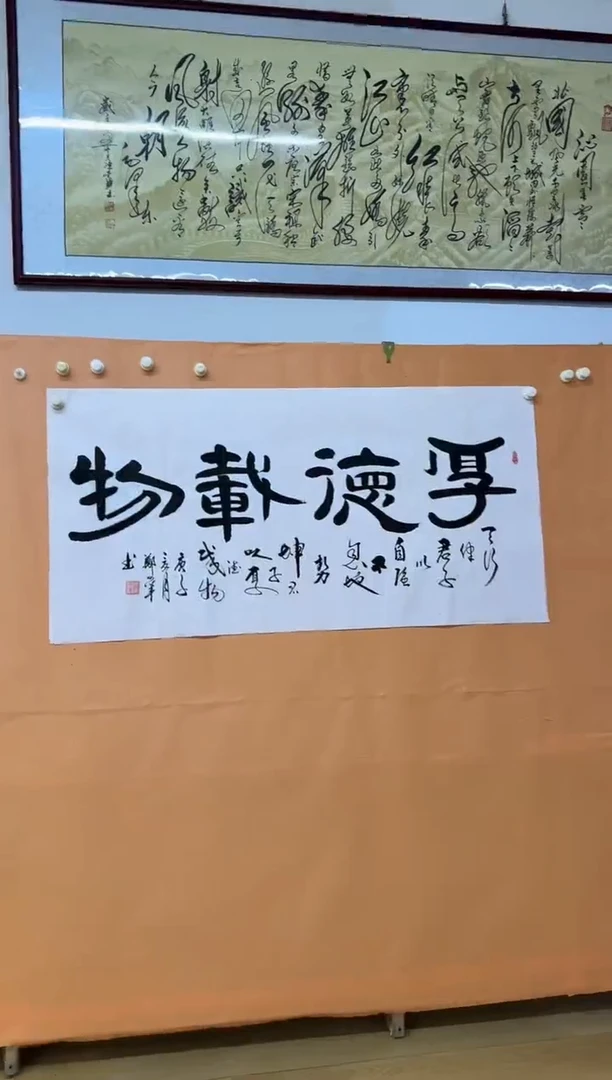 沁园春雪
北国风光千里冰封
万里雪飘望长城内外惟馀莽莽
大河上下顿失滔滔
山舞银蛇原驰蜡象
欲与天公试比高
须晴日看红装素裹
分外妖娆
江山如此多娇引
无数英雄竞折腰
惜秦皇汉武
略输文采唐宗宋祖稍逊
风骚一代天骄
成吉思汗只识弯弓
射大雕俱往矣数
风流人物还看
今朝
厚德載物
天行
健
君子
以
自强
不
息地
势
坤君
子
以厚
德
载物
庚子
亥月
书